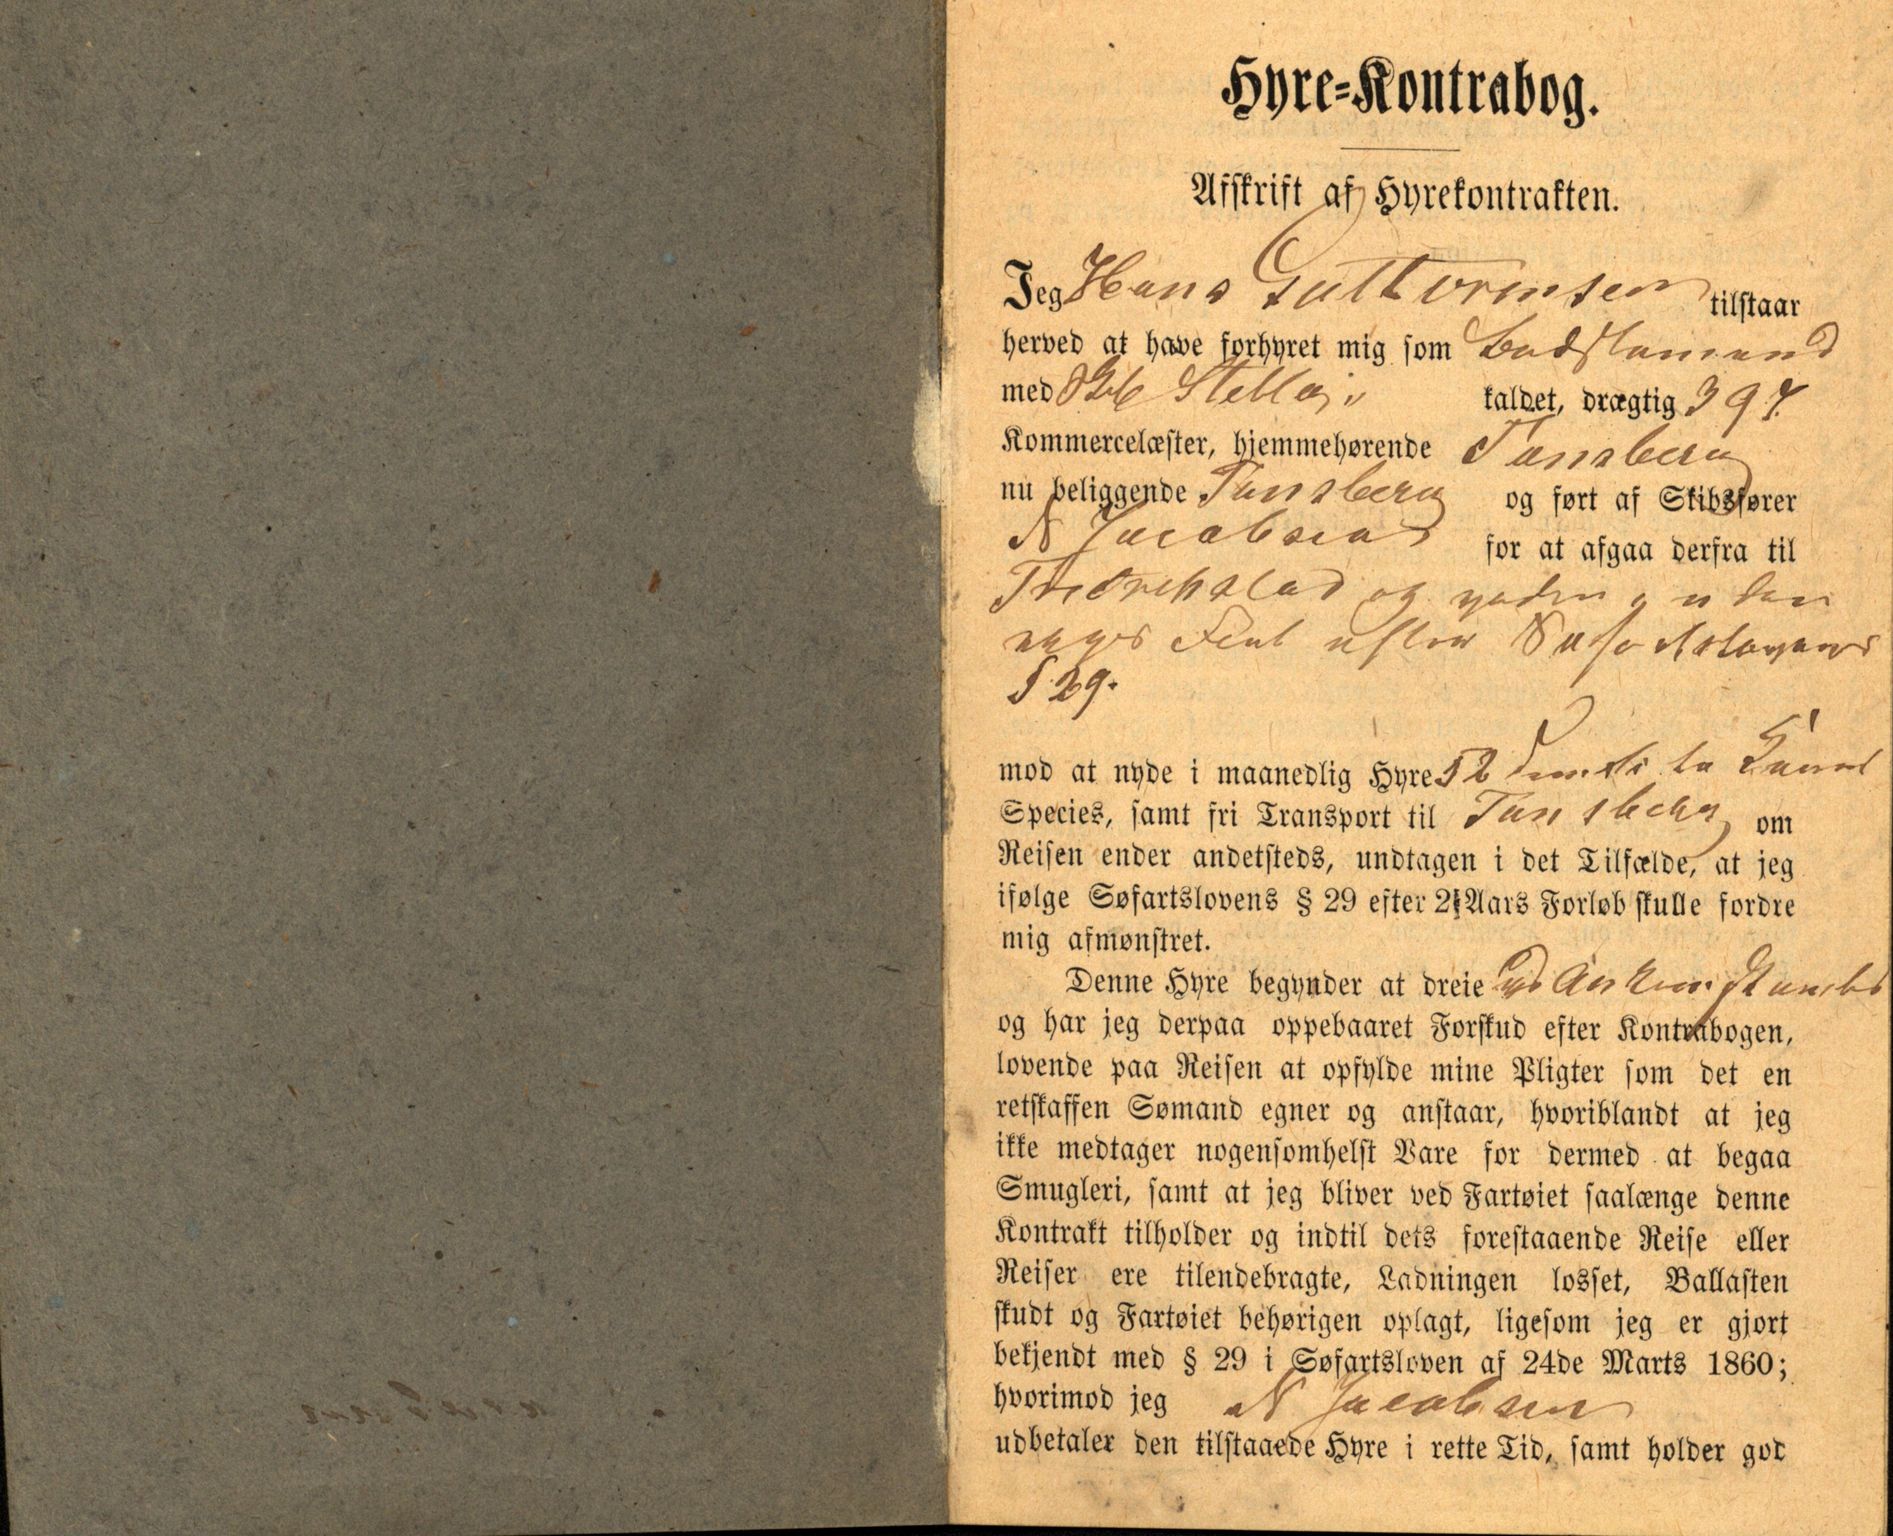 Hyre-Kontrabog.
Afskrift af Hyrekontrakten.
Jeg Hans Guttormsen tilstaar
herved at have forhyret mig som Baadsmand
med Stella kaldet, drægtig 397
Kommercelæster, hjemmehørende Tønsberg
nu beliggende Tønsberg og ført af Skibsfører
N Jacobsen for at afgaa derfra til
Fredrikstad og
efter Søfartslovens
§ 29.
mod at nyde i maanedlig Hyre 52 to Kroner
Species, samt fri Transport til Tønsberg om
Reisen ender andetsteds, undtagen i det Tilfælde, at jeg
ifølge Søfartslovens § 29 efter 2½ Aars Forløb skulle fordre
mig afmønstret.
Denne Hyre begynder at dreie ved
og har jeg derpaa oppebaaret Forskud efter Kontrabogen,
lovende paa Reisen at opfylde mine Pligter som det en
retskaffen Sømand egner og anstaar, hvoriblandt at jeg
ikke medtager nogensomhelst Vare for dermed at begaa
Smugleri, samt at jeg bliver ved Fartøiet saalænge denne
Kontrakt tilholder og indtil dets forestaaende Reise eller
Reiser ere tilendebragte, Ladningen losset, Ballasten
skudt og Fartøiet behørigen oplagt, ligesom jeg er gjort
bekjendt med § 29 i Søfartsloven af 24de Marts 1860;
hvorimod jeg N Jacobsen
udbetaler den tilstaaede Hyre i rette Tid, samt holder god